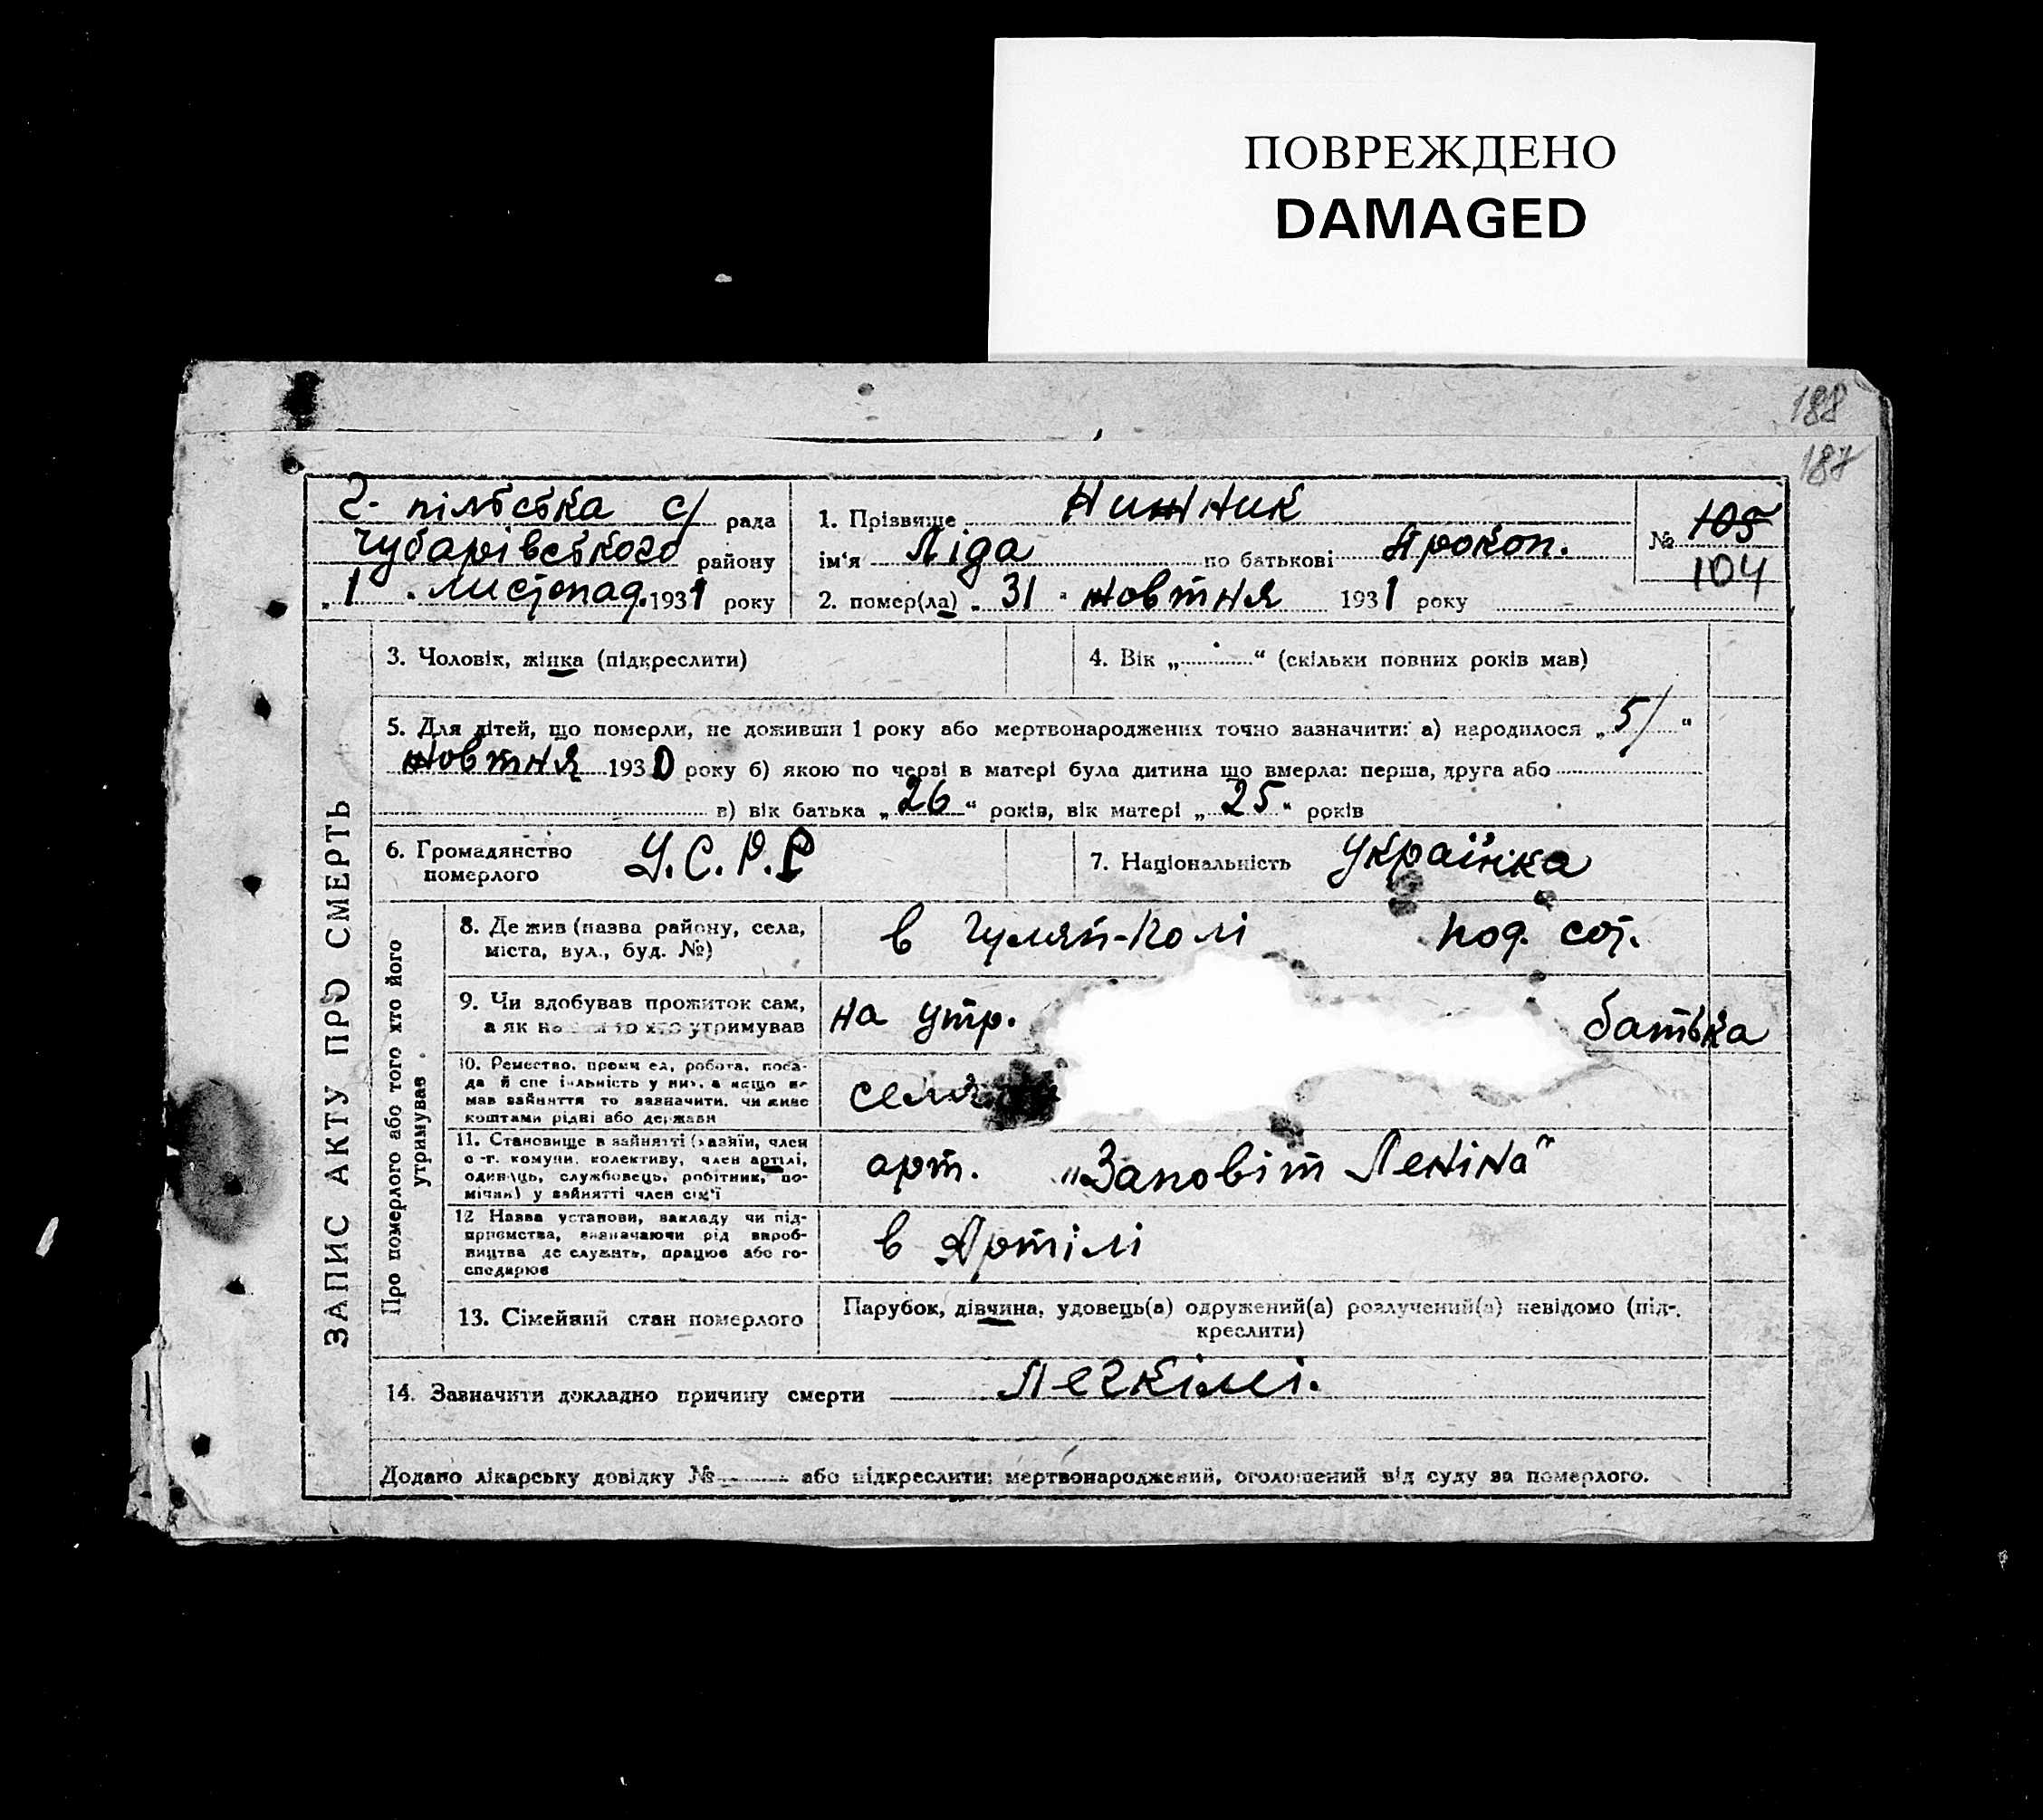 ПОВРЕЖДЕНО
DAMAGED
188
187
Г-пільська с/ рада
Чубарівського району
„ 1 " листопад. 1931 року
1. Прізвище Нижник
ім'я Ліда по батькові Прокоп.
2. помер(ла) „ 31 " жовтня 1931 року
№ 105
104
ЗАПИС АКТУ ПРО СМЕРТЬ
3. Чоловік, жінка (підкреслити)
4. Вік „ " (скільки повних років мав)
5. Для дітей, що померли, не доживши 1 року або мертвонароджених точно зазначити: а) народилося „ 5/ "
жовтня 1930 року б) якою по черзі в матері була дитина що вмерла: перша, друга або
в) вік батька „ 26 " років, вік матері „ 25 " років
6. Громадянство
померлого
У.С.Р.Р
7. Національність Українка
Про померлого або того хто його
утримував
8. Де жив (назва району, села,
міста, вул., буд. №)
в Гуляй-Полі
9. Чи здобував прожиток сам,
а як утримував
на утр. батька
10. Ремество, робота, поса-
да й у них, а якщо не
мав зайняття то зазначити, чи живе
коштами рідні або держави
11. Становище в зайнятті (хазяїн, член
с-г. комуни, колективу, член артілі,
одинець, службовець, робітник, по-
мічник) у зайнятті член сім'ї
арт. „Заповіт Леніна"
12 Назва установи, закладу чи під-
приємства, визначаючи рід вироб-
ництва де служить, працює або го-
сподарює
в Артілі
13. Сімейний стан померлого
Парубок, дівчина, удовець(а) одружений(а) розлучений(а) невідомо (під-
креслити)
14. Зазначити докладно причину смерти
Додано лікарську довідку № або підкреслити: мертвонароджений, оголошений від суду за померлого.